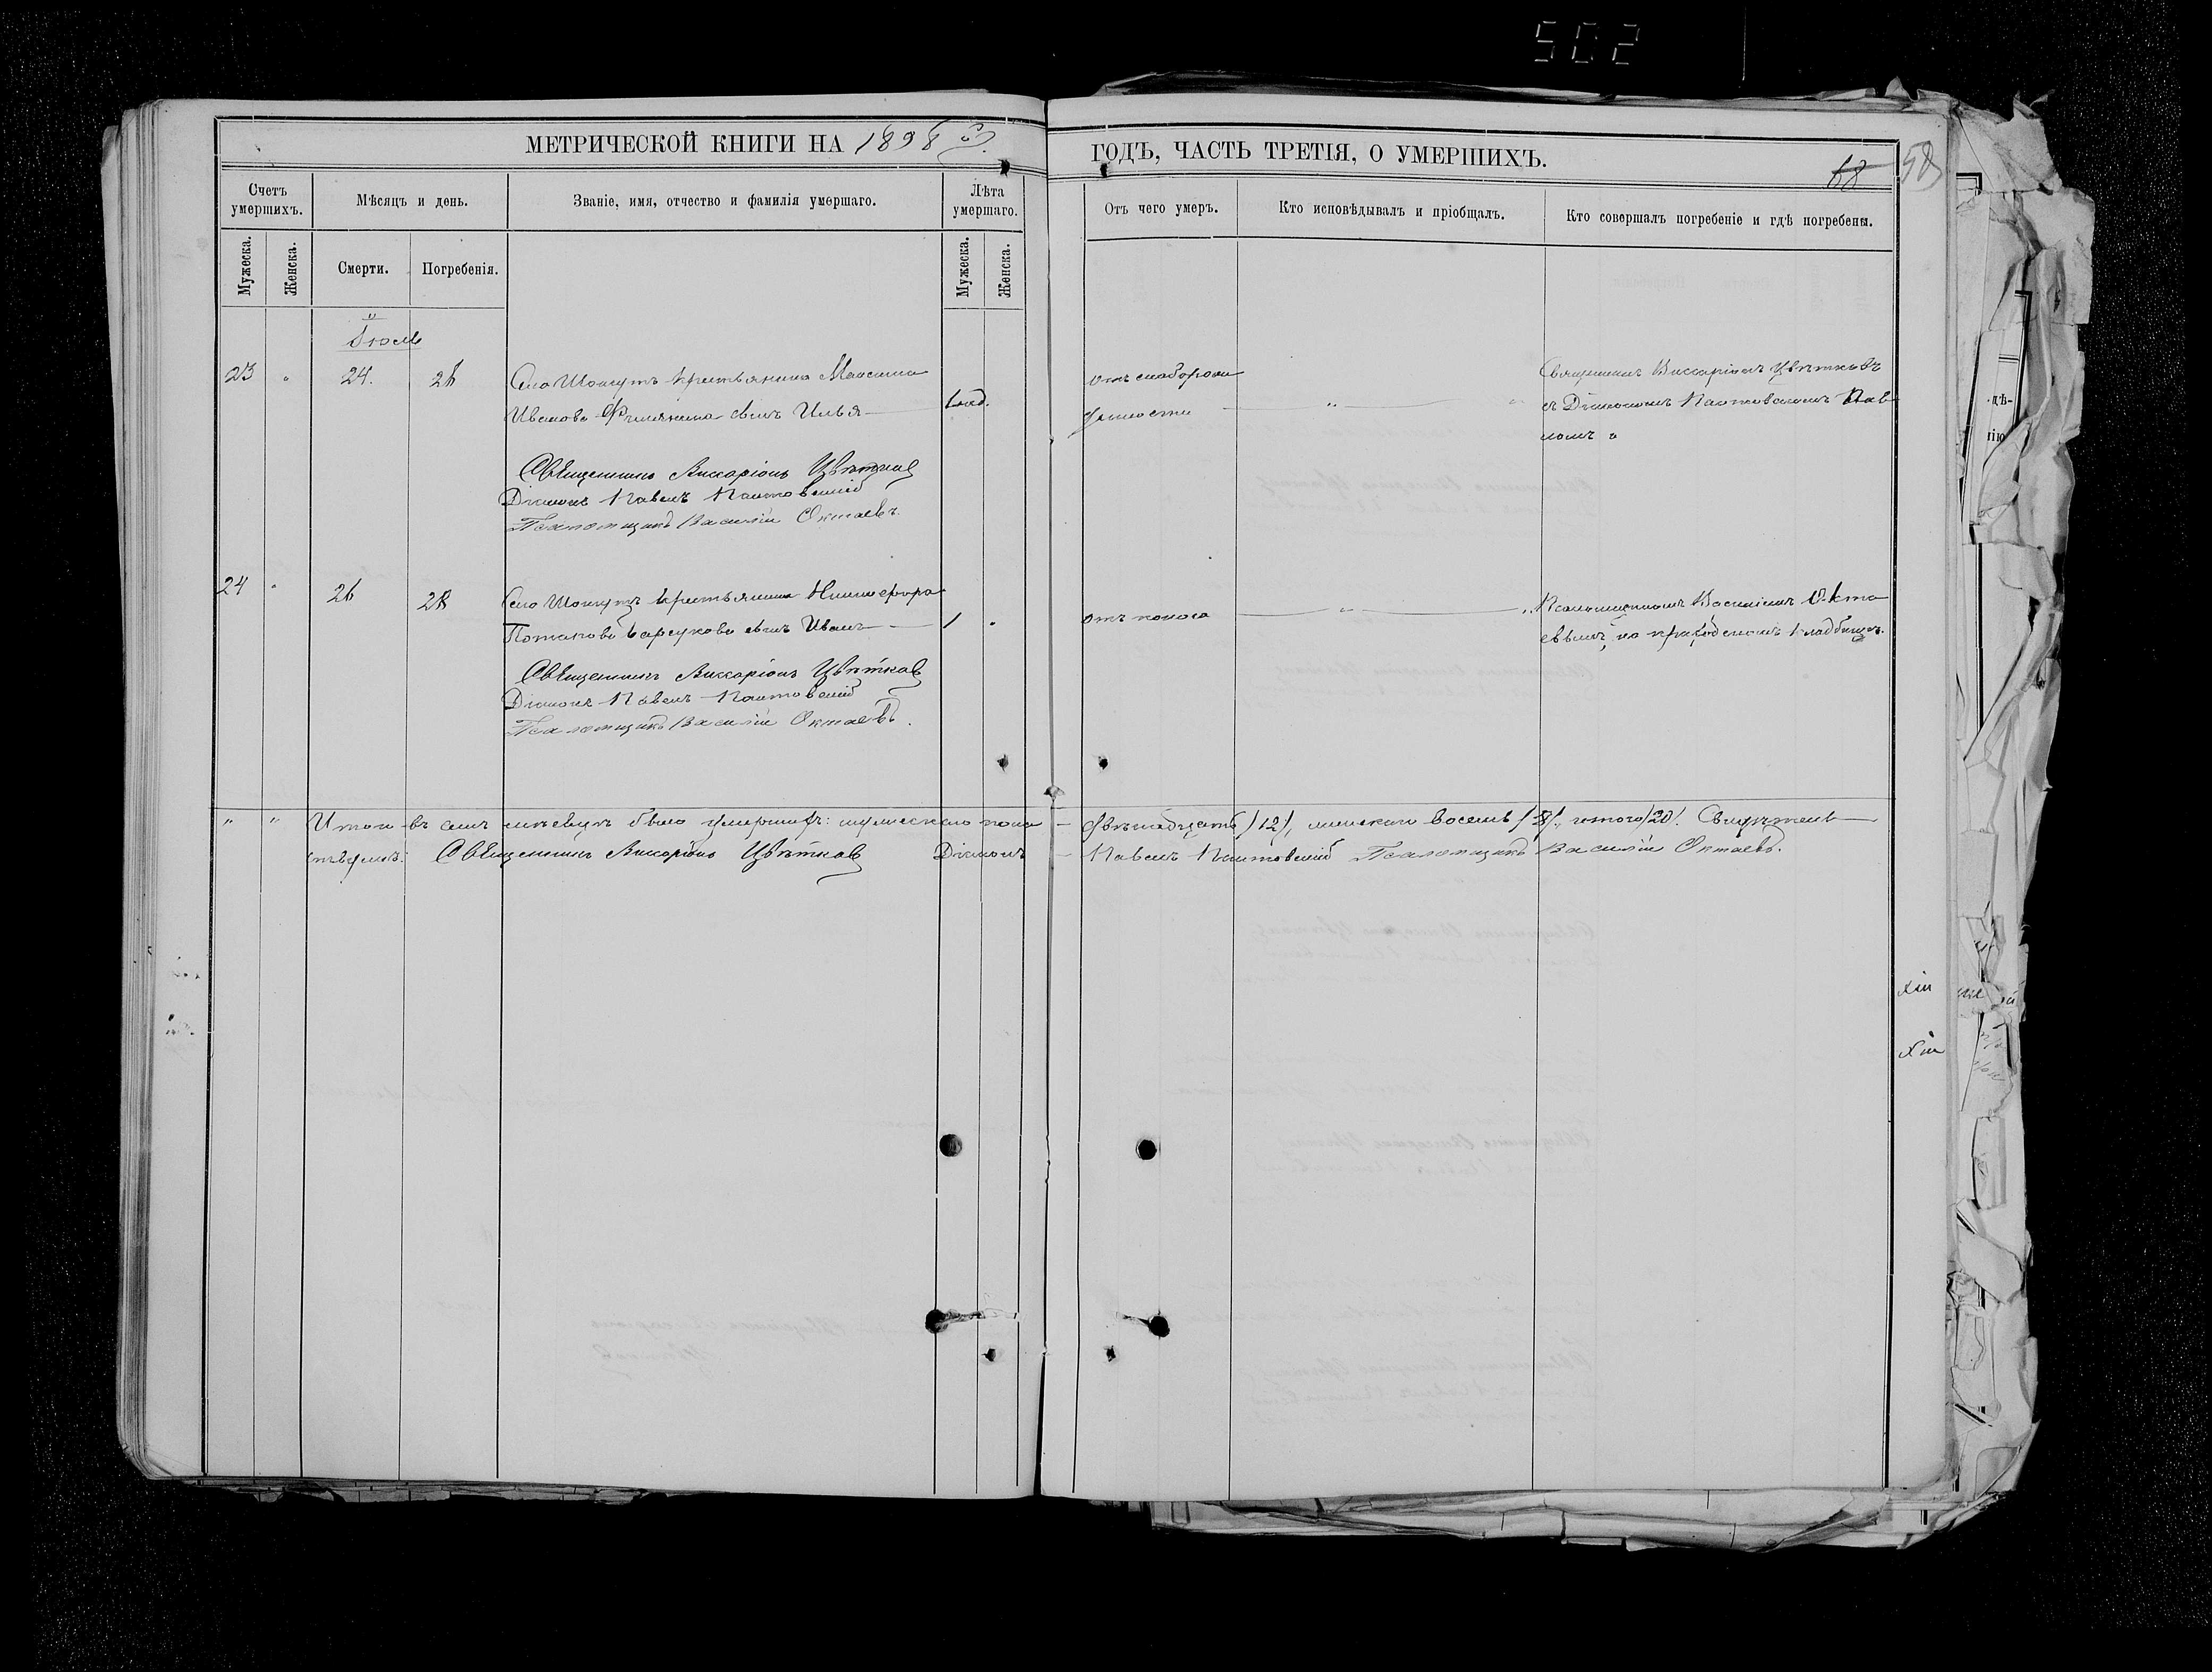 502
МЕТРИЧЕСКОЙ КНИГИ НА 1898 й ГОДЪ, ЧАСТЬ ТРЕТІЯ, О УМЕРШИХЪ.
68 58
Счетъ умершихъ.
Мѣсяцъ и день.
Званіе, имя, отчество и фамилія умершаго.
Лѣта умершаго.
Отъ чего умеръ.
Кто исповѣдывалъ и пріобщалъ.
Кто совершалъ погребеніе и гдѣ погребены.
Мужеска.
Женска.
Смерти.
Погребенія.
Мужеска.
Женска.
Іюль
23 " 24. 26
Села Шонгутъ крестьянина Максима
Иванова сынъ Илья
отъ слаборож
денности
Священникъ Виссаріонъ Цвѣтковъ
съ Діакономъ Павломъ
Священникъ Виссаріонъ Цвѣтковъ
Діаконъ Павелъ
Псаломщикъ Василій Октаевъ.
24 " 26 28
Села Шонгутъ крестьянина Никифора
Потапова Барсукова сынъ Иванъ 1 "
отъ поноса
Псаломщикомъ Василіемъ Окта
евымъ, на приходскомъ кладбищѣ.
Священникъ Виссаріонъ Цвѣтковъ
Діаконъ Павелъ
Псаломщикъ Василій Октаевъ.
" " Итого въ семъ мѣсяцѣ было умершихъ: мужескаго пола двѣнадцать /12/, женскаго восемь /8/, итого /20/. Свидѣтель
ствуемъ: Священникъ Виссаріонъ Цвѣтковъ Діаконъ Павелъ Псаломщикъ Василій Октаевъ.